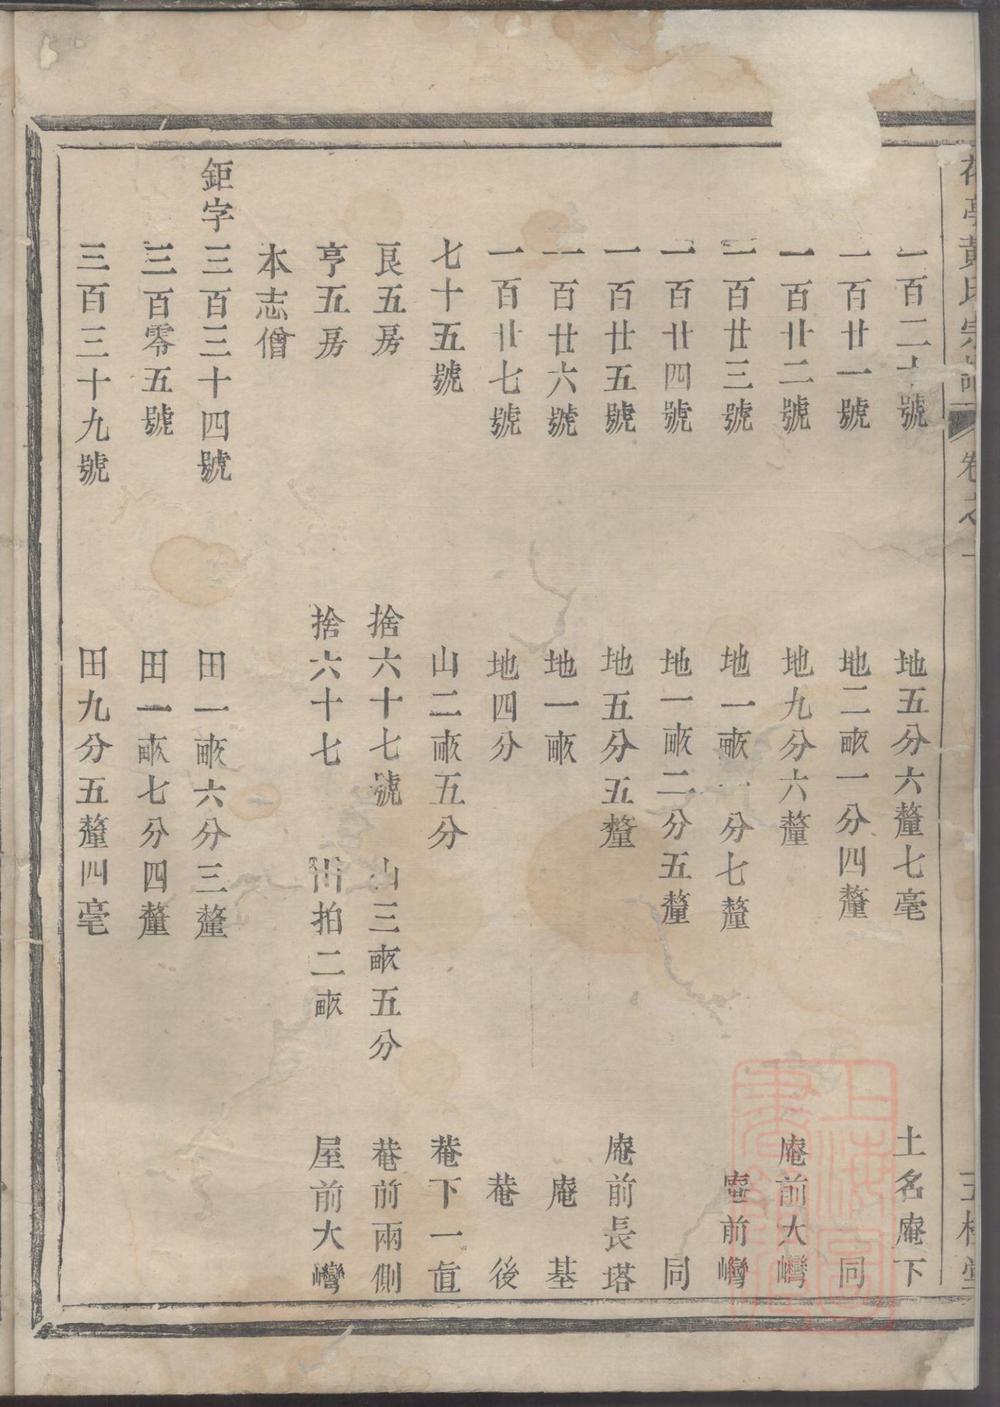 黃氏宗譜 卷之
一百二十號 地五分六釐七毫 土名庵下
一百廿一號 地二畝一分四釐 同
一百廿二號 地九分六釐 庵前大灣
一百廿三號 地一畝一分七釐 庵前灣
一百廿四號 地一畝二分五釐 同
一百廿五號 地五分五釐 庵前長塔
一百廿六號 地一畝 庵基
一百廿七號 地四分 菴後
七十五號 山二畝五分 菴下一直
艮五房 捨六十七號 山三畝五分 菴前兩側
亨五房 捨六十七 田拍二畝 屋前大灣
本志僧
鉅字三百三十四號 田一畝六分三釐
三百零五號 田一畝七分四釐
三百三十九號 田九分五釐四毫